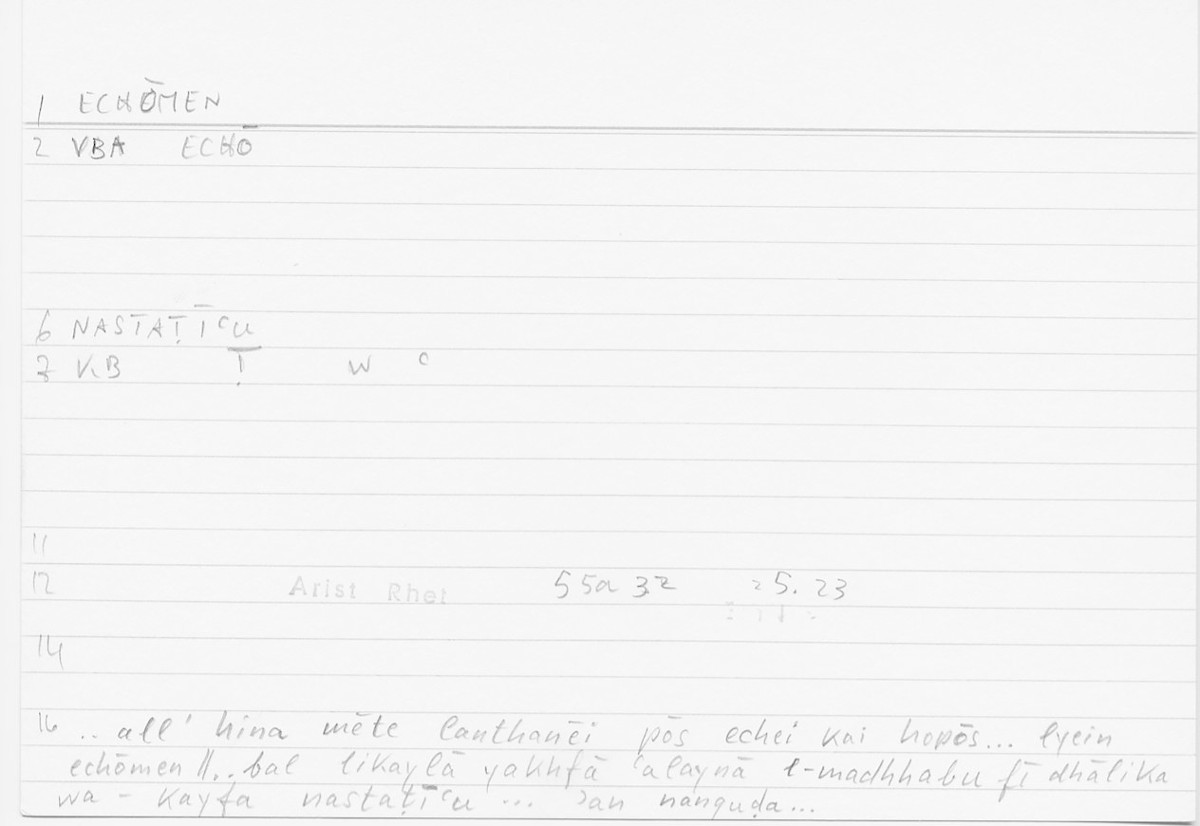 1 ECHŌMEN
2 VBA ECHŌ
6 NASTAṬĪʿU
7 V.B Ṭ W ʿ
11
12 Arist Rhet 55a 32 25. 23
14
16 .. all' hina mēte lanthanēi pōs echei kai hopōs... lyein
echōmen //.. bal likaylā yakhfā ʿalaynā l-madhhabu fī dhālika
wa - kayfa nastaṭīʿu ... ʾan nanquḍa...